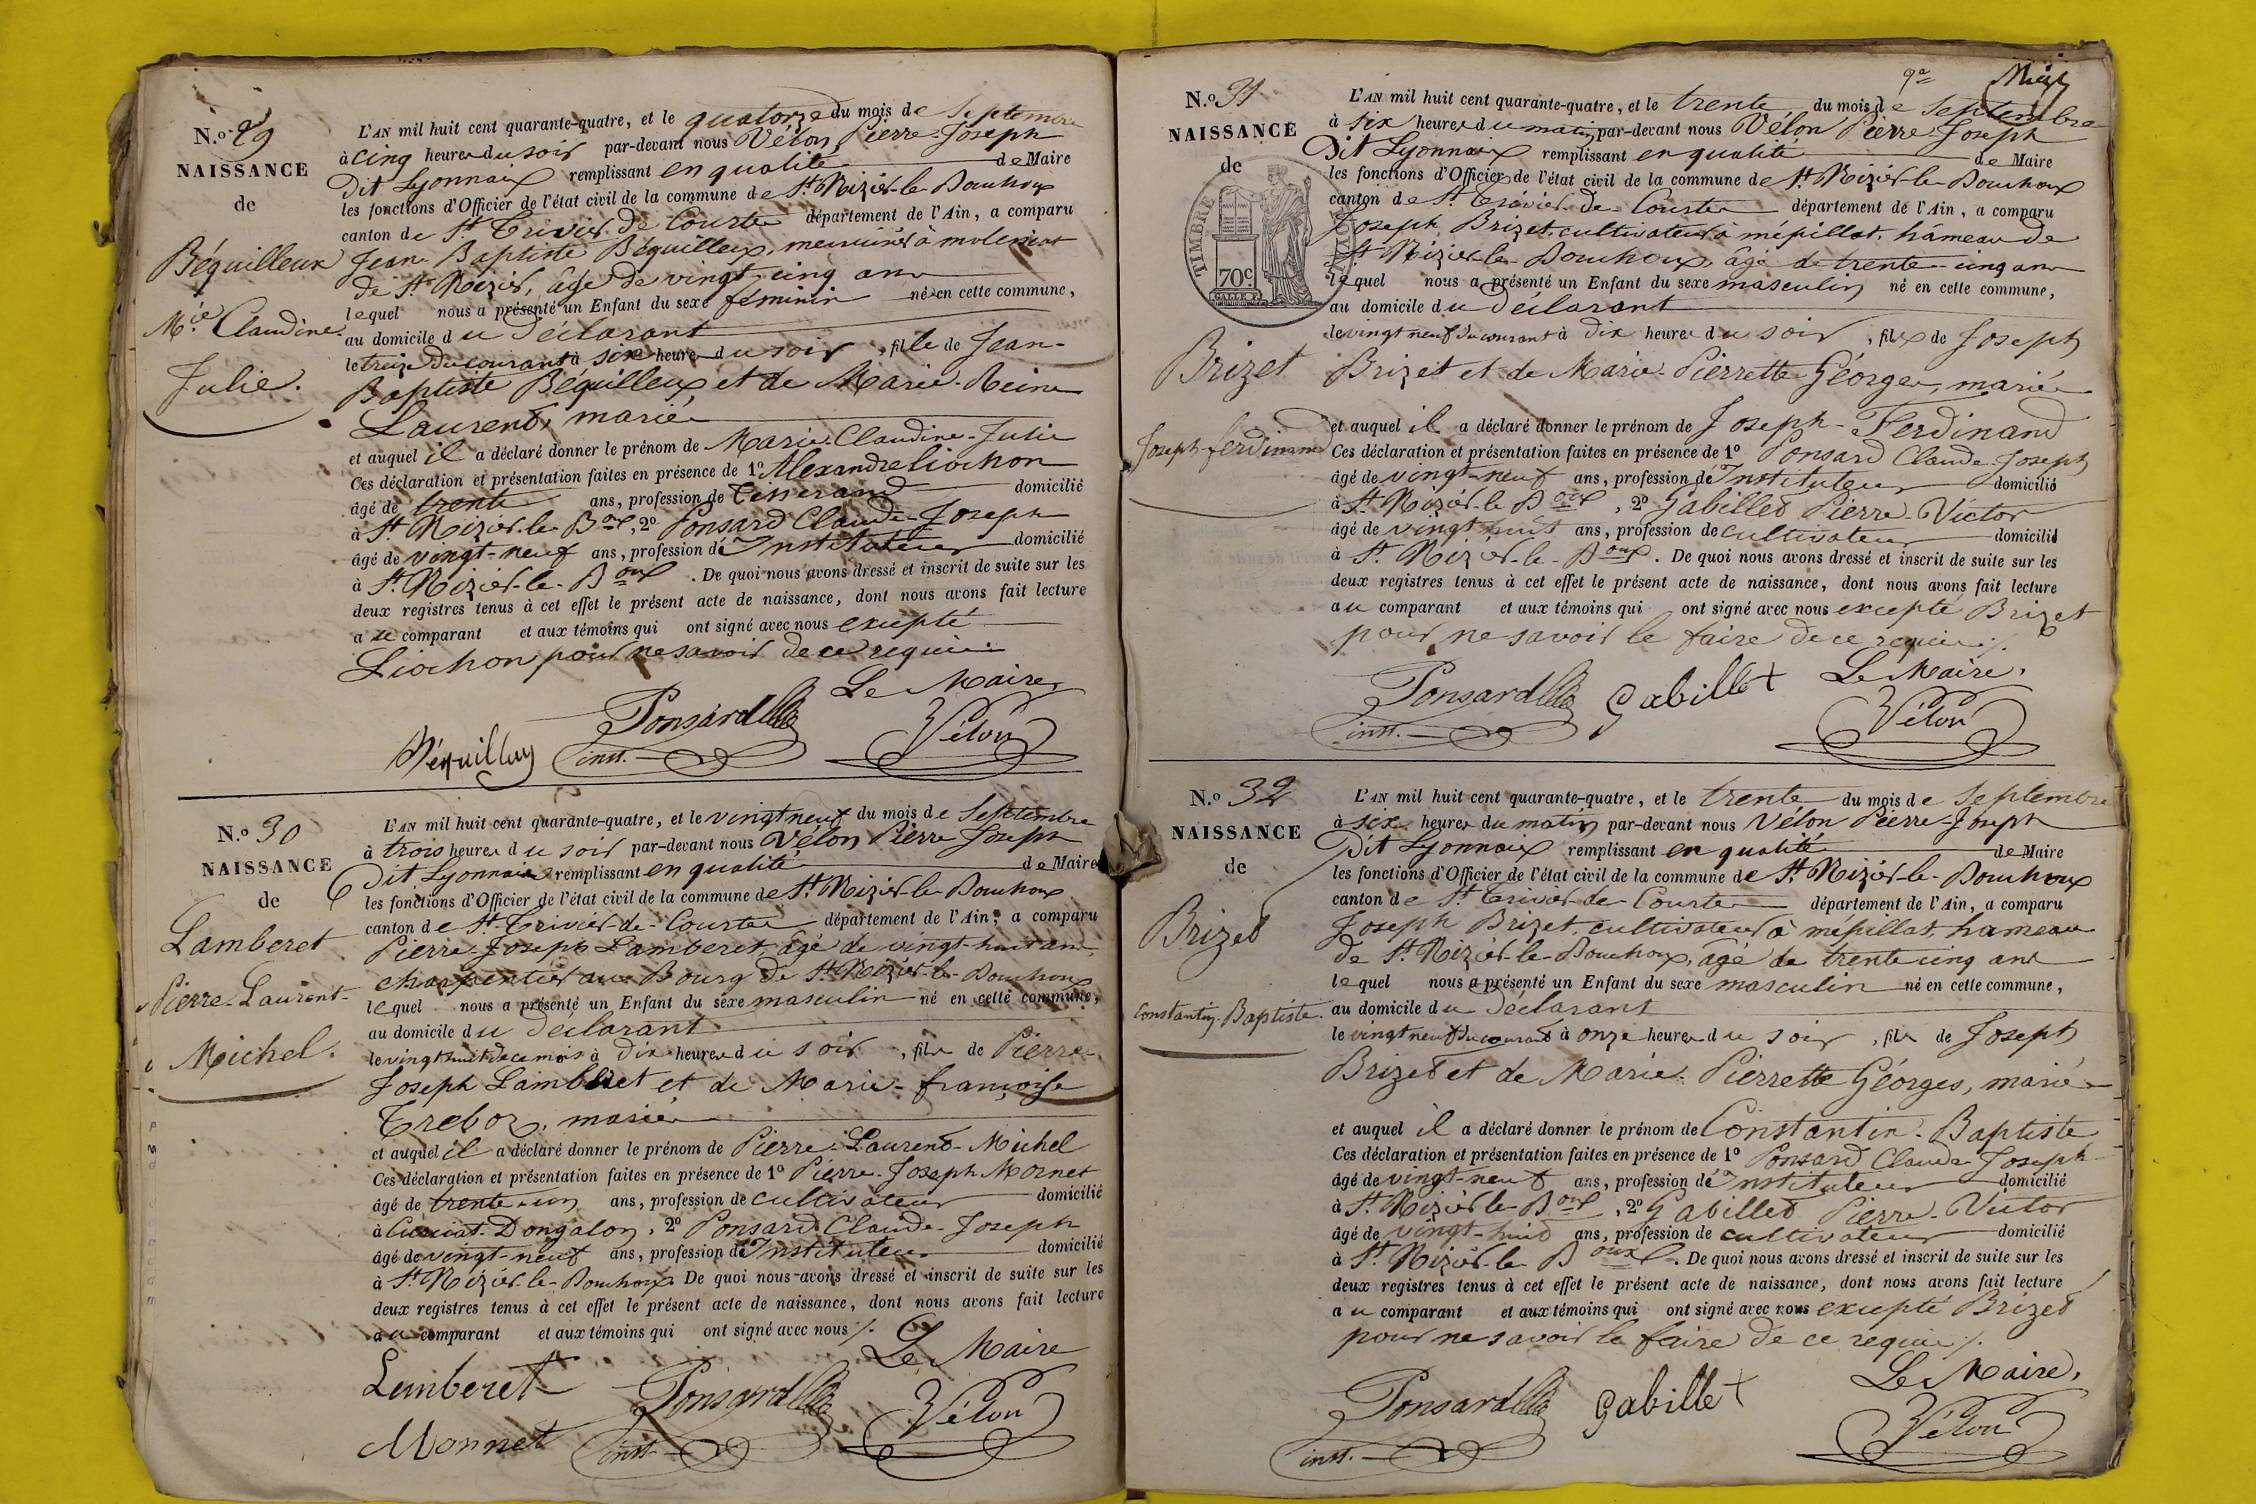 N.º 29
NAISSANCE
de
Béguilleux
M.ie Claudine
Julie.
L'AN mil huit cent quarante-quatre, et le quatorze du mois de Septembre
à cinq heures du soir par-devant nous Vélon Pierre-Joseph
Dit Lyonnais remplissant en qualité de Maire
les fonctions d'Officier de l'état civil de la commune de St. Nizier-le-Bouchoux
canton de St. Trivier-de-Courtes département de l'Ain, a comparu
Jean Baptiste Béguilleux, menuisier à
de St. Nizier, âgé de vingt-cinq ans
lequel nous a présenté un Enfant du sexe féminin né en cette commune,
au domicile du Déclarant
le treize du courant à six heures du soir, fille de Jean-
Baptiste Béguilleux et de Marie-Reine
Laurent, mariés
et auquel il a déclaré donner le prénom de Marie-Claudine-Julie
Ces déclaration et présentation faites en présence de 1º Alexandre Liochon
âgé de trente ans, profession de Tisserand domicilié
à St. Nizier-le-Boux, 2º Ponsard Claude-Joseph
âgé de vingt-neuf ans, profession d'Instituteur domicilié
à St. Nizier-le-Boux. De quoi nous avons dressé et inscrit de suite sur les
deux registres tenus à cet effet le présent acte de naissance, dont nous avons fait lecture
au comparant et aux témoins qui ont signé avec nous excepté
Liochon pour ne savoir de ce requis
Le Maire
Béguilleux Ponsard Vélon
inst.
N.º 30
NAISSANCE
de
Lamberet
Pierre-Laurent-
Michel.
L'AN mil huit cent quarante-quatre, et le vingt neuf du mois de Septembre
à trois heures du soir par-devant nous Vélon Pierre Joseph
Dit Lyonnais remplissant en qualité de Maire
les fonctions d'Officier de l'état civil de la commune de St. Nizier-le-Bouchoux
canton de St. Trivier-de-Courtes département de l'Ain, a comparu
Pierre-Joseph Lamberet, âgé de vingt-huit ans,
charpentier au Bourg de St. Nizier-le-Bouchoux
lequel nous a présenté un Enfant du sexe masculin né en cette commune,
au domicile du Déclarant
le vingt huit de ce mois à dix heures du soir, fils de Pierre-
Joseph Lamberet et de Marie-françoise
Treboz, mariés
et auquel il a déclaré donner le prénom de Pierre-Laurent-Michel
Ces déclaration et présentation faites en présence de 1º Pierre-Joseph Monnet
âgé de trente-un ans, profession de cultivateur domicilié
à Curciat-Dongalon, 2º Ponsard Claude-Joseph
âgé de vingt-neuf ans, profession d'Instituteur domicilié
à St. Nizier-le-Bouchoux. De quoi nous avons dressé et inscrit de suite sur les
deux registres tenus à cet effet le présent acte de naissance, dont nous avons fait lecture
au comparant et aux témoins qui ont signé avec nous /.
Le Maire
Lamberet Ponsard Vélon
Monnet inst.
9e
N.º 31
NAISSANCE
de
TIMBRE ROYAL
70c.
Brizet
Joseph ferdinand
L'AN mil huit cent quarante-quatre, et le trente du mois de Septembre
à six heures du matin par-devant nous Vélon Pierre-Joseph
Dit Lyonnais remplissant en qualité de Maire
les fonctions d'Officier de l'état civil de la commune de St. Nizier-le-Bouchoux
canton de St. Trivier-de-Courtes département de l'Ain, a comparu
Joseph Brizet, cultivateur à mépillat, hâmeau de
St. Nizier-le-Bouchoux, âgé de trente-cinq ans
lequel nous a présenté un Enfant du sexe masculin né en cette commune,
au domicile du Déclarant
le vingt neuf du courant à dix heures du soir, fils de Joseph
Brizet et de Marie-Pierrette Géorges, mariés
et auquel il a déclaré donner le prénom de Joseph-Ferdinand
Ces déclaration et présentation faites en présence de 1º Ponsard Claude-Joseph
âgé de vingt-neuf ans, profession d'Instituteur domicilié
à St. Nizier-le-Boux, 2º Gabillet Pierre-Victor
âgé de vingt huit ans, profession de cultivateur domicilié
à St. Nizier-le-Boux. De quoi nous avons dressé et inscrit de suite sur les
deux registres tenus à cet effet le présent acte de naissance, dont nous avons fait lecture
au comparant et aux témoins qui ont signé avec nous excepté Brizet
pour ne savoir le faire de ce requis /.
Le Maire,
Ponsard Gabillet Vélon
inst.
N.º 32
NAISSANCE
de
Brizet
Constantin-Baptiste.
L'AN mil huit cent quarante-quatre, et le trente du mois de Septembre
à six heures du matin par-devant nous Vélon Pierre-Joseph
Dit Lyonnais remplissant en qualité de Maire
les fonctions d'Officier de l'état civil de la commune de St. Nizier-le-Bouchoux
canton de St. Trivier-de-Courtes département de l'Ain, a comparu
Joseph Brizet, cultivateur à mépillat, hameau
de St. Nizier-le-Bouchoux, âgé de trente cinq ans
lequel nous a présenté un Enfant du sexe masculin né en cette commune,
au domicile du Déclarant
le vingt neuf du courant à onze heures du soir, fils de Joseph
Brizet et de Marie-Pierrette Géorges, mariés
et auquel il a déclaré donner le prénom de Constantin-Baptiste
Ces déclaration et présentation faites en présence de 1º Ponsard Claude-Joseph
âgé de vingt-neuf ans, profession d'Instituteur domicilié
à St. Nizier-le-Boux, 2º Gabillet Pierre-Victor
âgé de vingt-huit ans, profession de cultivateur domicilié
à St. Nizier-le-Boux. De quoi nous avons dressé et inscrit de suite sur les
deux registres tenus à cet effet le présent acte de naissance, dont nous avons fait lecture
au comparant et aux témoins qui ont signé avec nous excepté Brizet
pour ne savoir le faire de ce requis /.
Le Maire,
Ponsard Gabillet Vélon
inst.